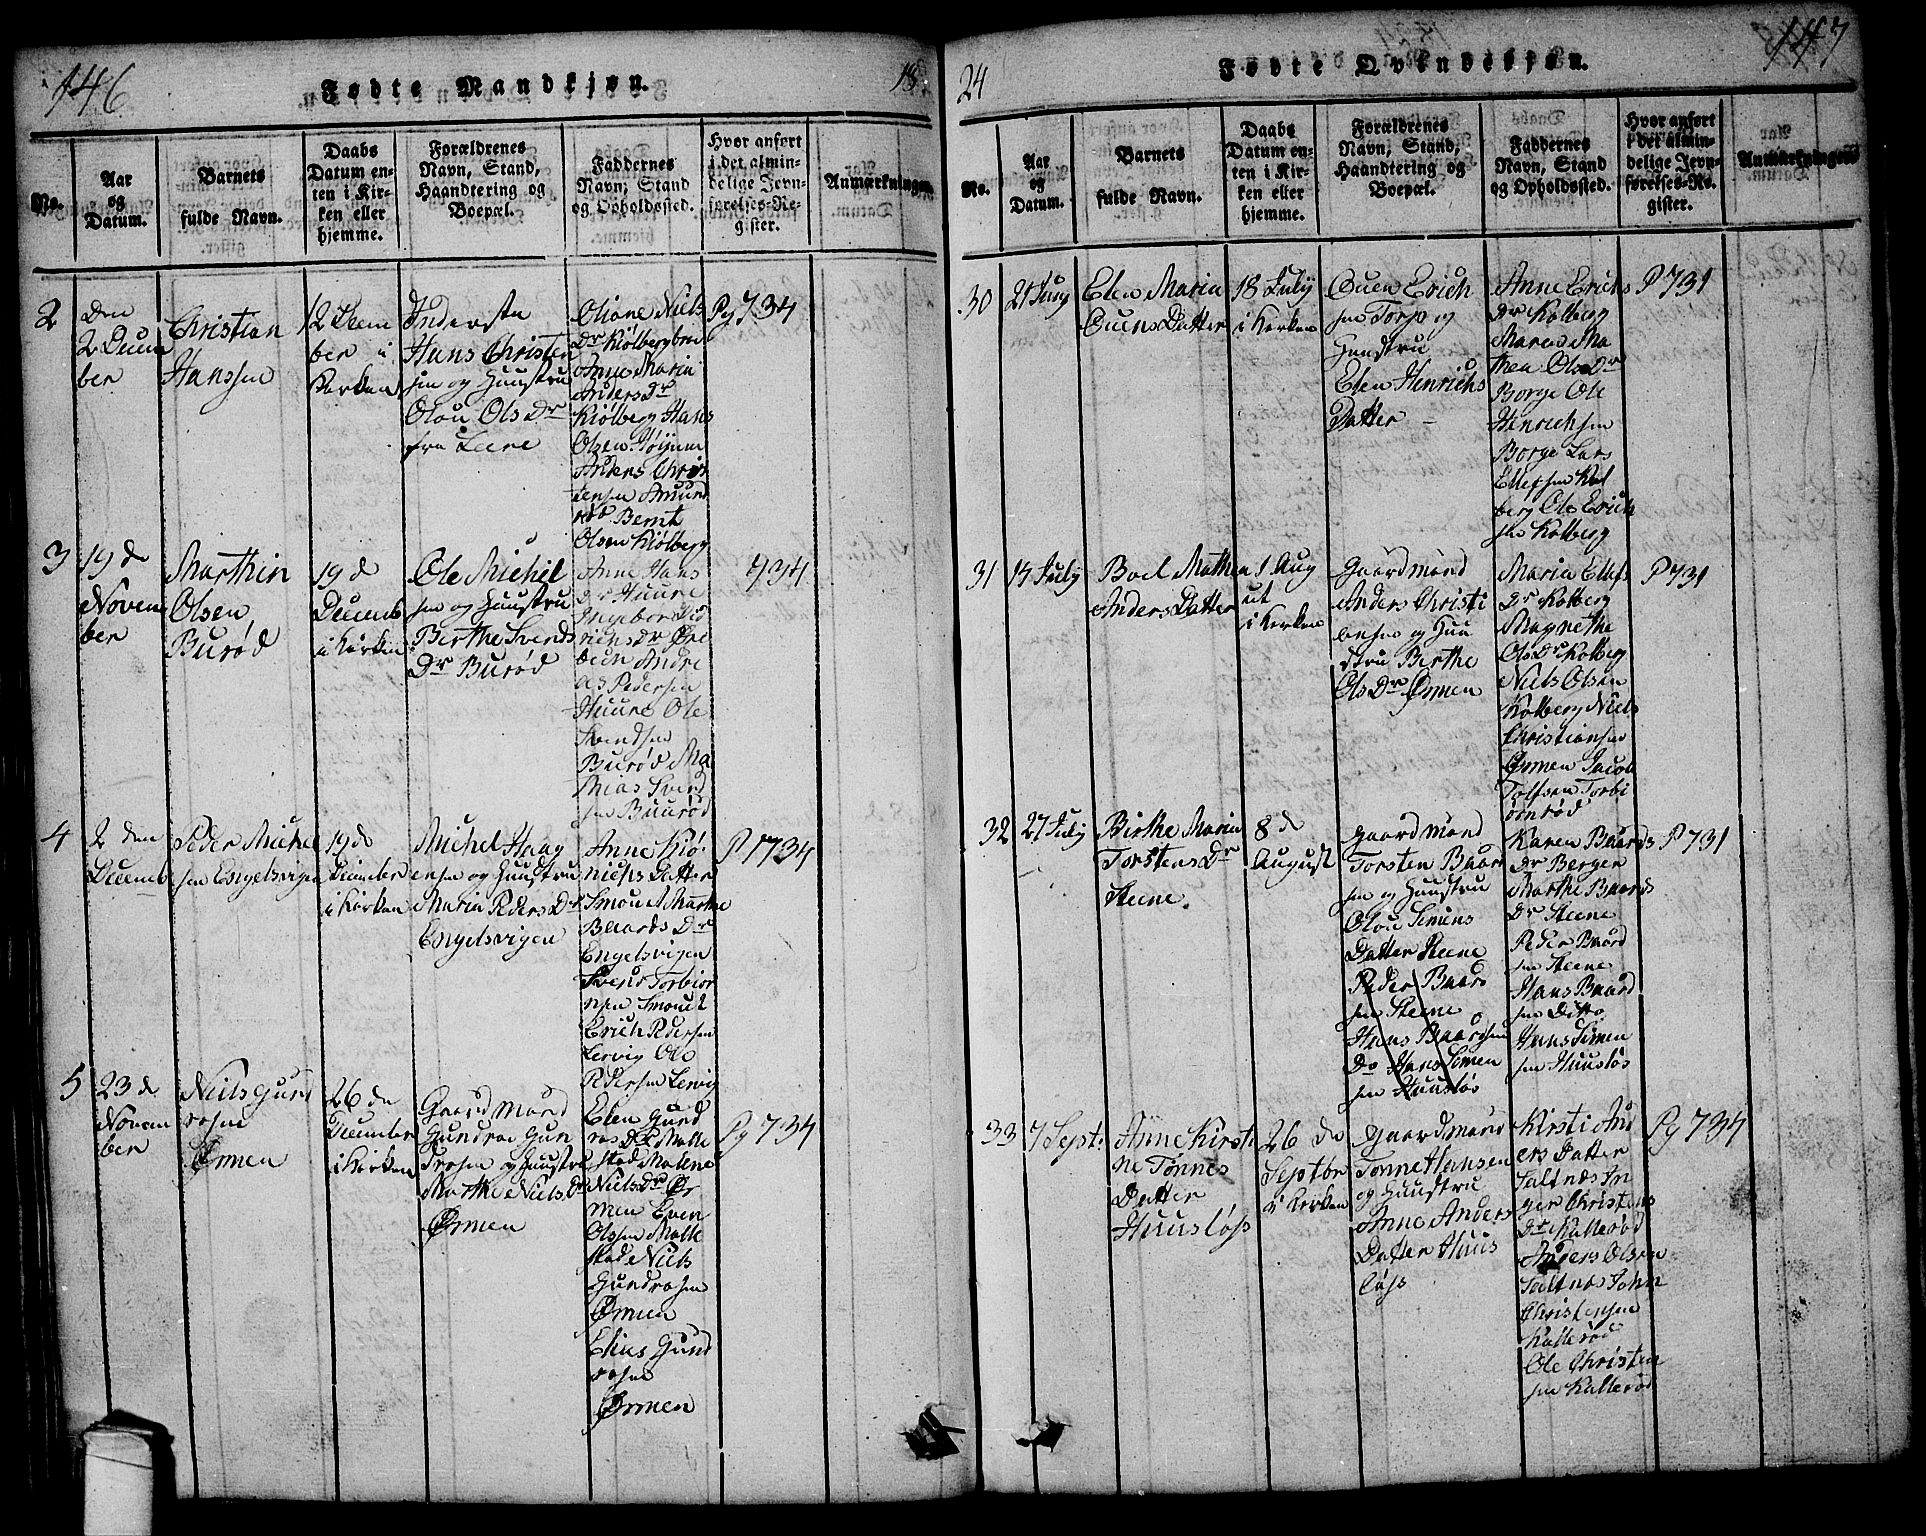 146
Fødte Mandkjøn.
18
No.
Aar
og
Datum.
Barnets
fulde Navn.
Daabs
Datum en-
ten i Kir-
ken eller
hjemme.
Forældrenes
Navn, Stand,
Haandtering og
Boepæl.
Faddernes
Navn, Stand
og Opholdssted.
Hvor anført
i det almin-
delige Jevn-
førelses-Re-
gister.
Anmærkninger.
2
den
2 Decem
ber
Christian
Hanssen
12 Decem
ber i
Kirken
Inderste
Hans Christen
sen og Huustru
Olou Ols Dr
fra Leere
Oliane Niels
Dr Kiølbergbrei
Anne Maria
Anders Dr
Kiølberg Hans
Olsen Høijum
Anders Chris
tensen Amund
rød Bernt
Olsen Kiølberg
Pg 734
3
19 de
Novem
ber
Marthin
Olsen
Burød
19 d
Decemb
i Kirken
Ole Michel
sen og Huustru
Berthe Svends
Dr Burød
Anne Hans
Dr Huure
Ingebor Did
richs Dr Øre
been Andre
as Pedersen
Huure Ole
Svendsen
Burød Ma
thias Svend
sen Buurød
734
4
2 den
Decemb
Peder Michel
sen Engelsvigen
19 d
December
i Kirken
Michel Haag
ensen og Huustru
Maria Peders Dr
Engelsvigen
Anne Kiø
nichs Datter
Smouet Marthe
Baards Dr
Engelsvigen
Svend Torbior
nsen Smouet
Erich Pedersen
Lervig Ole
Pedersen Lervig
P 1734
5
23 d
Novem
ber
Niels Gund
rosen
Ørmen
26 de
December
i Kirken
Gaardmand
Gundroe Gun
drosen og Huustru
Marthe Niels Dr
Ørmen
Elen Gund
ros Dr Malle
stad Malene
Niels Dr Ør
men Even
Olssen Malle
stad Niels
Gundrosen
Ørmen
Elius Gund
rosen
Ørmen
Pg 734
24
Fødte Qvindekjøn.
147
No.
Aar
og
Datum.
Barnets
fulde Navn.
Daabs
Datum en-
ten i Kir-
ken eller
hjemme.
Forældrenes
Navn, Stand,
Haandtering og
Boepæl.
Faddernes
Navn, Stand
og Opholdssted.
Hvor anført
i det almin-
delige Jevn-
førelses-Re-
gister.
Anmærkninger
30
21 Juny
Elen Maria
Ouens Datter
18 July
i Kirken
Ouen Erich
sen Torp og
Huustru
Elen Henrichs
Datter
Anne Erichs
Dr Kolberg
Maren Ma
thea Ols Dr
Borge Ole
Henrichsen
Borge Lars
Ellefsen Kol
berg Ole Erich
sen Kolberg
P 731
31
14 July
Boel Mathea
Anders Datter
1 Aug
ut
i Kirken
Gaardmand
Anders Christi
ansen og Huu
stru Berthe
Ols Dr Ørmen
Maria Ellefs
Dr Kolberg
Magnethe
Ols Dr Kolberg
Niels Olsen
Kolberg Niels
Christiansen
Ørmen Jacob
Tolfsen Torbi
ørnrød
P 731
32
27 July
Birthe Maria
Torstens Dr
Steene.
8 de
August
Gaardmand
Torsten Baard
sen og Huustru
Olou Simens
Datter Steene
Peder Baard
sen Steene
Hans Baardsen
Do Hans Simen
sen Huusløs
Karen Baards
Dr Berger
Marthe Baards
Dr Steene
Peder Baard
sen Steene
Hans Baard
sen Ditto
Hans Simen
sen Huusløs
P 731
33
7 Septr
Anne Kirsti
ne Tønnes
Datter
Huusløss
26 de
Septbr
i Kirken
Gaardmand
Tønne Hansen
og Huustru
Anne Anders
Datter Huus
løss
Kirsti And
ers Datter
Saltnæs In
ger Christens
Dr Kallerød
Anders Olsen
Saltnæs John
Christensen
Kallerød
Ole Christen
sen Kallerød
Pg 734